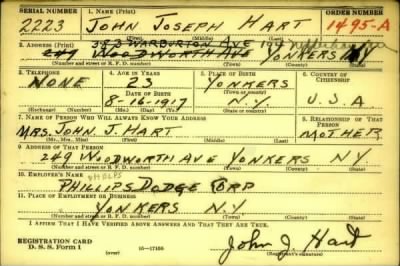 SERIAL NUMBER 1. NAME (Print) ORDER NUMBER
2223 JOHN JOSEPH HART 1495-A
(First) (Middle) (Last)
2. ADDRESS (Print) 383 WARBURTON AVE
249 WOODWORTH AVE YONKERS N.Y
(Number and street or R. F. D. number) (Town) (County) (State)
3. TELEPHONE 4. AGE IN YEARS 5. PLACE OF BIRTH 6. COUNTRY OF CITIZENSHIP
NONE 23 YONKERS
DATE OF BIRTH (Town or county)
8-16-1917 N.Y. U.S.A
(Exchange) (Number) (Mo.) (Day) (Yr.) (State or country)
7. NAME OF PERSON WHO WILL ALWAYS KNOW YOUR ADDRESS 8. RELATIONSHIP OF THAT PERSON
MRS. JOHN J. HART MOTHER
(Mr., Mrs., Miss) (First) (Middle) (Last)
9. ADDRESS OF THAT PERSON
249 WOODWORTH AVE YONKERS NY
(Number and street or R. F. D. number) (Town) (County) (State)
10. EMPLOYER'S NAME
PHELPS
PHILLIPS DODGE CORP
11. PLACE OF EMPLOYMENT OR BUSINESS
YONKERS N.Y
(Number and street or R. F. D. number) (Town) (County) (State)
I AFFIRM THAT I HAVE VERIFIED ABOVE ANSWERS AND THAT THEY ARE TRUE.
REGISTRATION CARD
D. S. S. Form 1 (over) 16—17105 John J. Hart
(Registrant's signature)